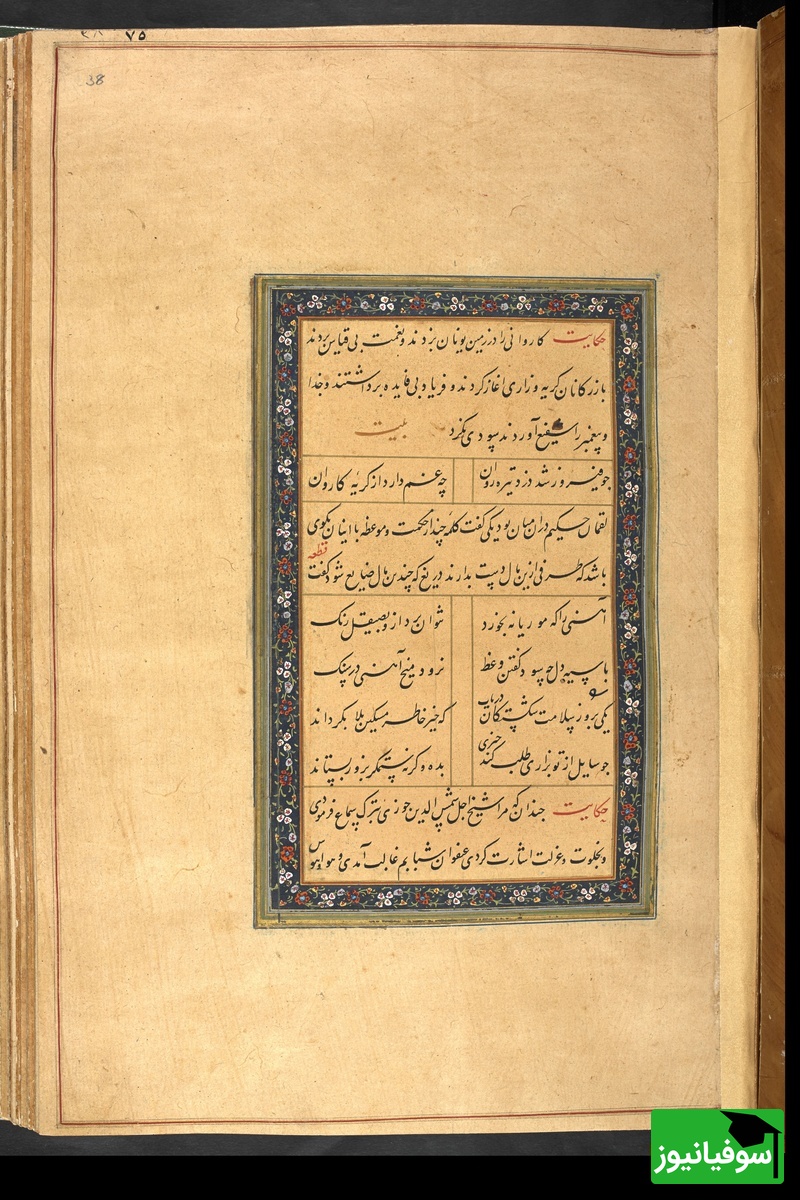 ٧۵
38
حکایت کاروانی را در زمین یونان بزدند و نعمت بی قیاس بردند
بازرکانان کریه و زاری اغاز کردند و فریاد بی فایده برداشتند و خدا
و پیغمبر را شفیع آوردند سودی نکرد بیت
جو فیروز شد دزد تیره روان
چه غم دارد از کریه کاروان
لقمان حکیم دران میان بود یکی کفت کلمه چند از حکمت و موعظه با اینان بکوی
باشد که طرفی ازین مال دست بدارند دریغ که چندین مال ضایع شود کفت
قطعه
آهنی را که موریانه بخورد
نتوان برد ازو بصیقل زنک
با سیه دل چه سود کفتن وعظ
نرود میخ آهنی در سنک
بروز سلامت شکستکان دریاب
که خیر خاطر مسکین بلا بکرداند
جو سایل از تو بزاری طلب کند چیزی
بده وکرنه ستمکر بزور بستاند
حکایت جندان که مرا شیخ اجل شمس الدین جوزی بترک سماع فرمودی
و بخلوت و عزلت اشارت کردی عنفوان شبابم غالب آمدی و هوا و هوس
سوفیانیوز